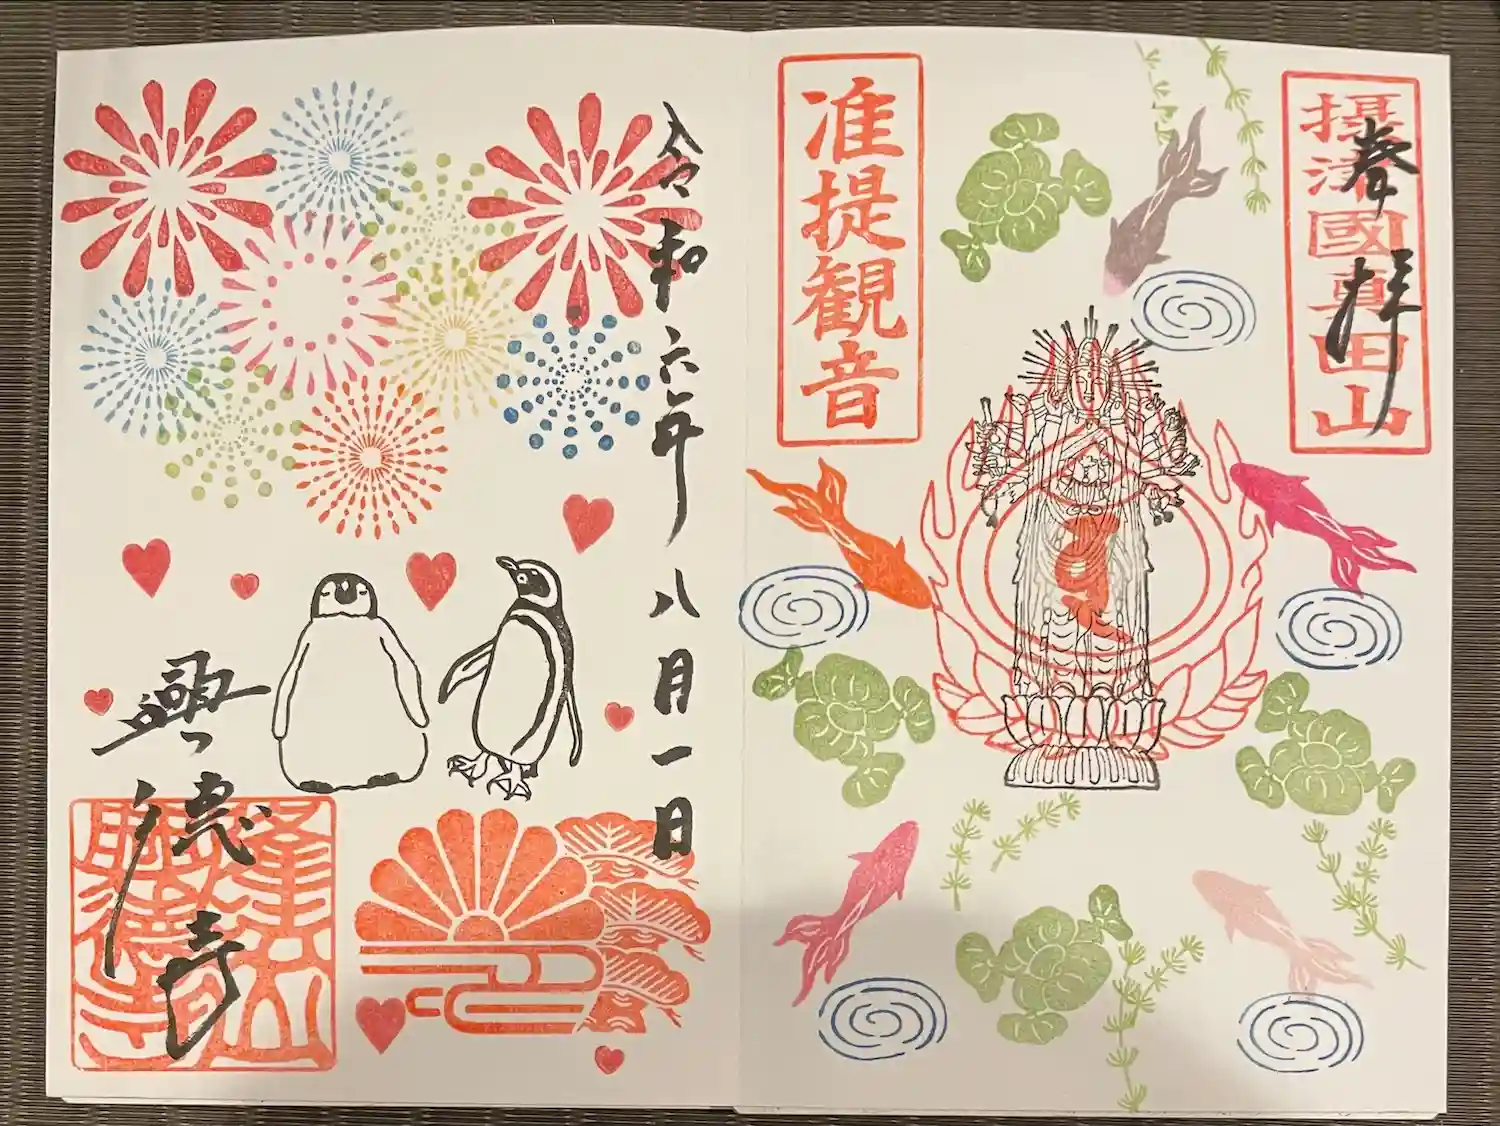 摂津國真田山
奉拝
准提観音
令和六年八月一日
興徳寺